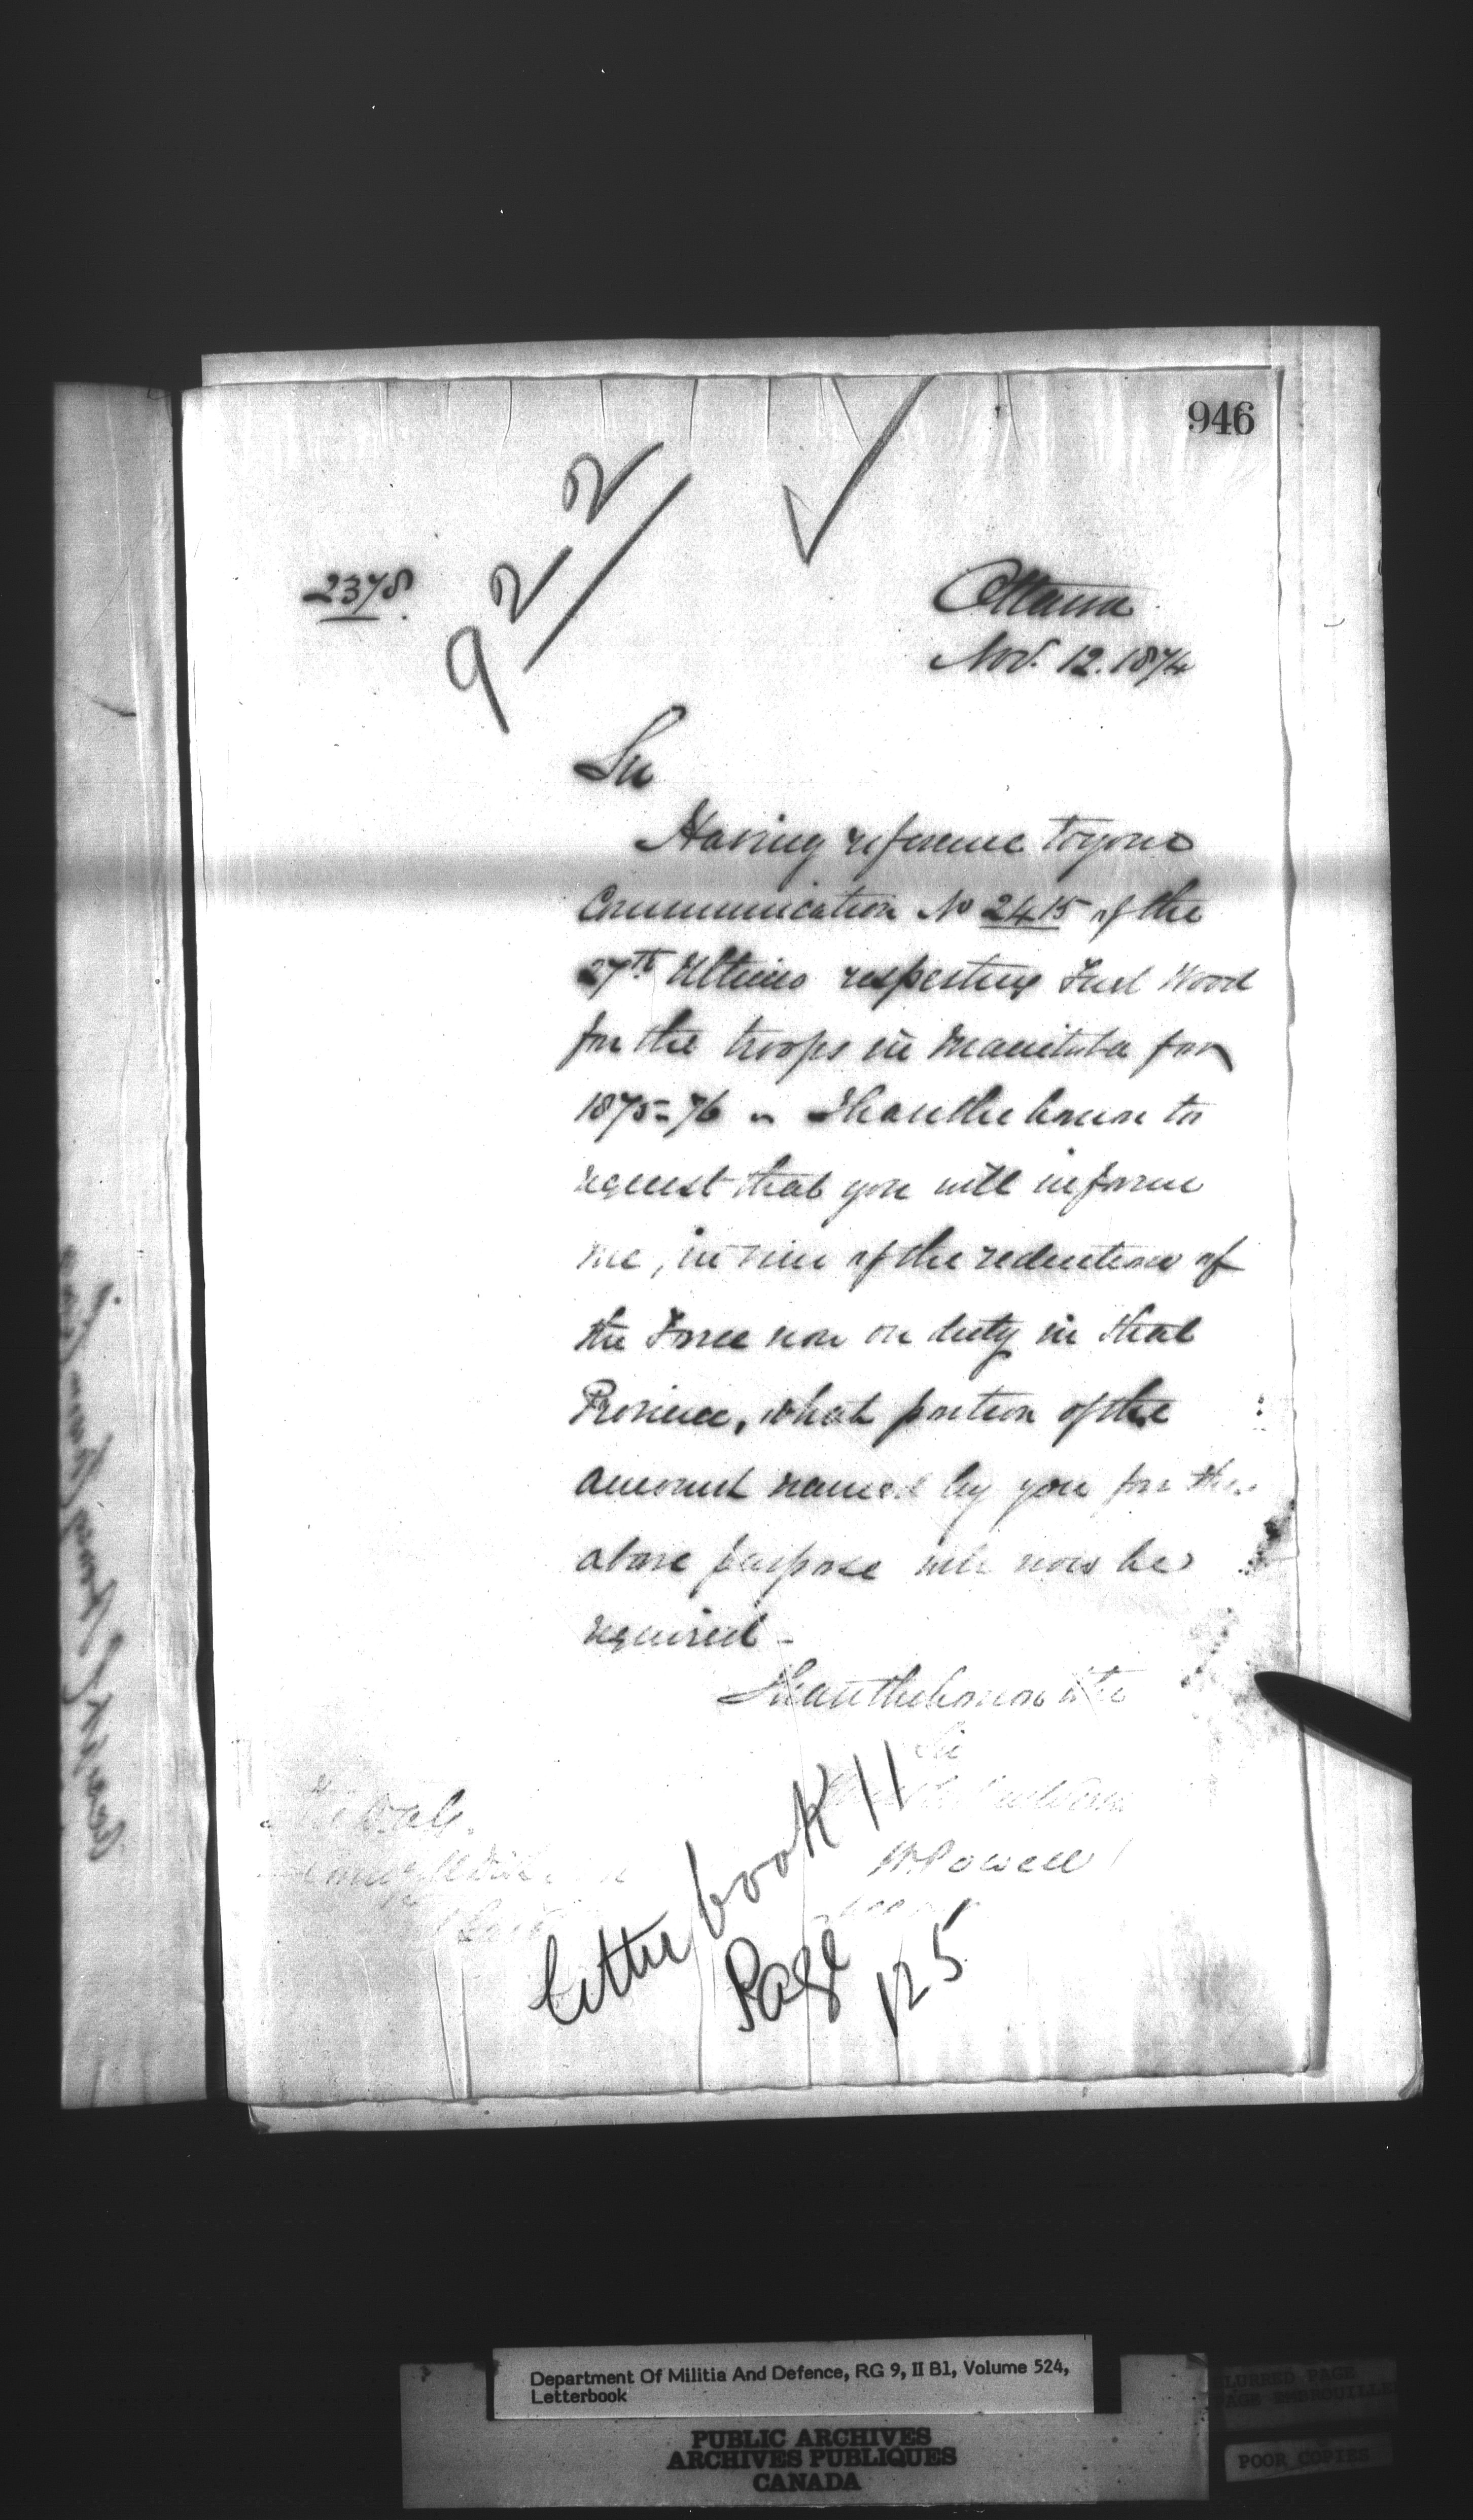 946
922
2378
Ottawa
Nov. 12. 1874
Sir
Having reference to your
Communication No 2415 of the
27th Ultimo respecting Fuel Wood
for the troops in Manitoba for
1875-76 - I have the honor to
request that you will inform
me, in view of the reduction of
the Force now on duty in that
Province, what portion of the
amount named by you for the
above purpose will now be
required -
I have the honor to be
Sir
W Powell
Letter book 11
Page 125
Department Of Militia And Defence, RG 9, II B1, Volume 524,
Letterbook
PUBLIC ARCHIVES
ARCHIVES PUBLIQUES
CANADA
BLURRED PAGE
PAGE EMBROUILLEE
POOR COPIES